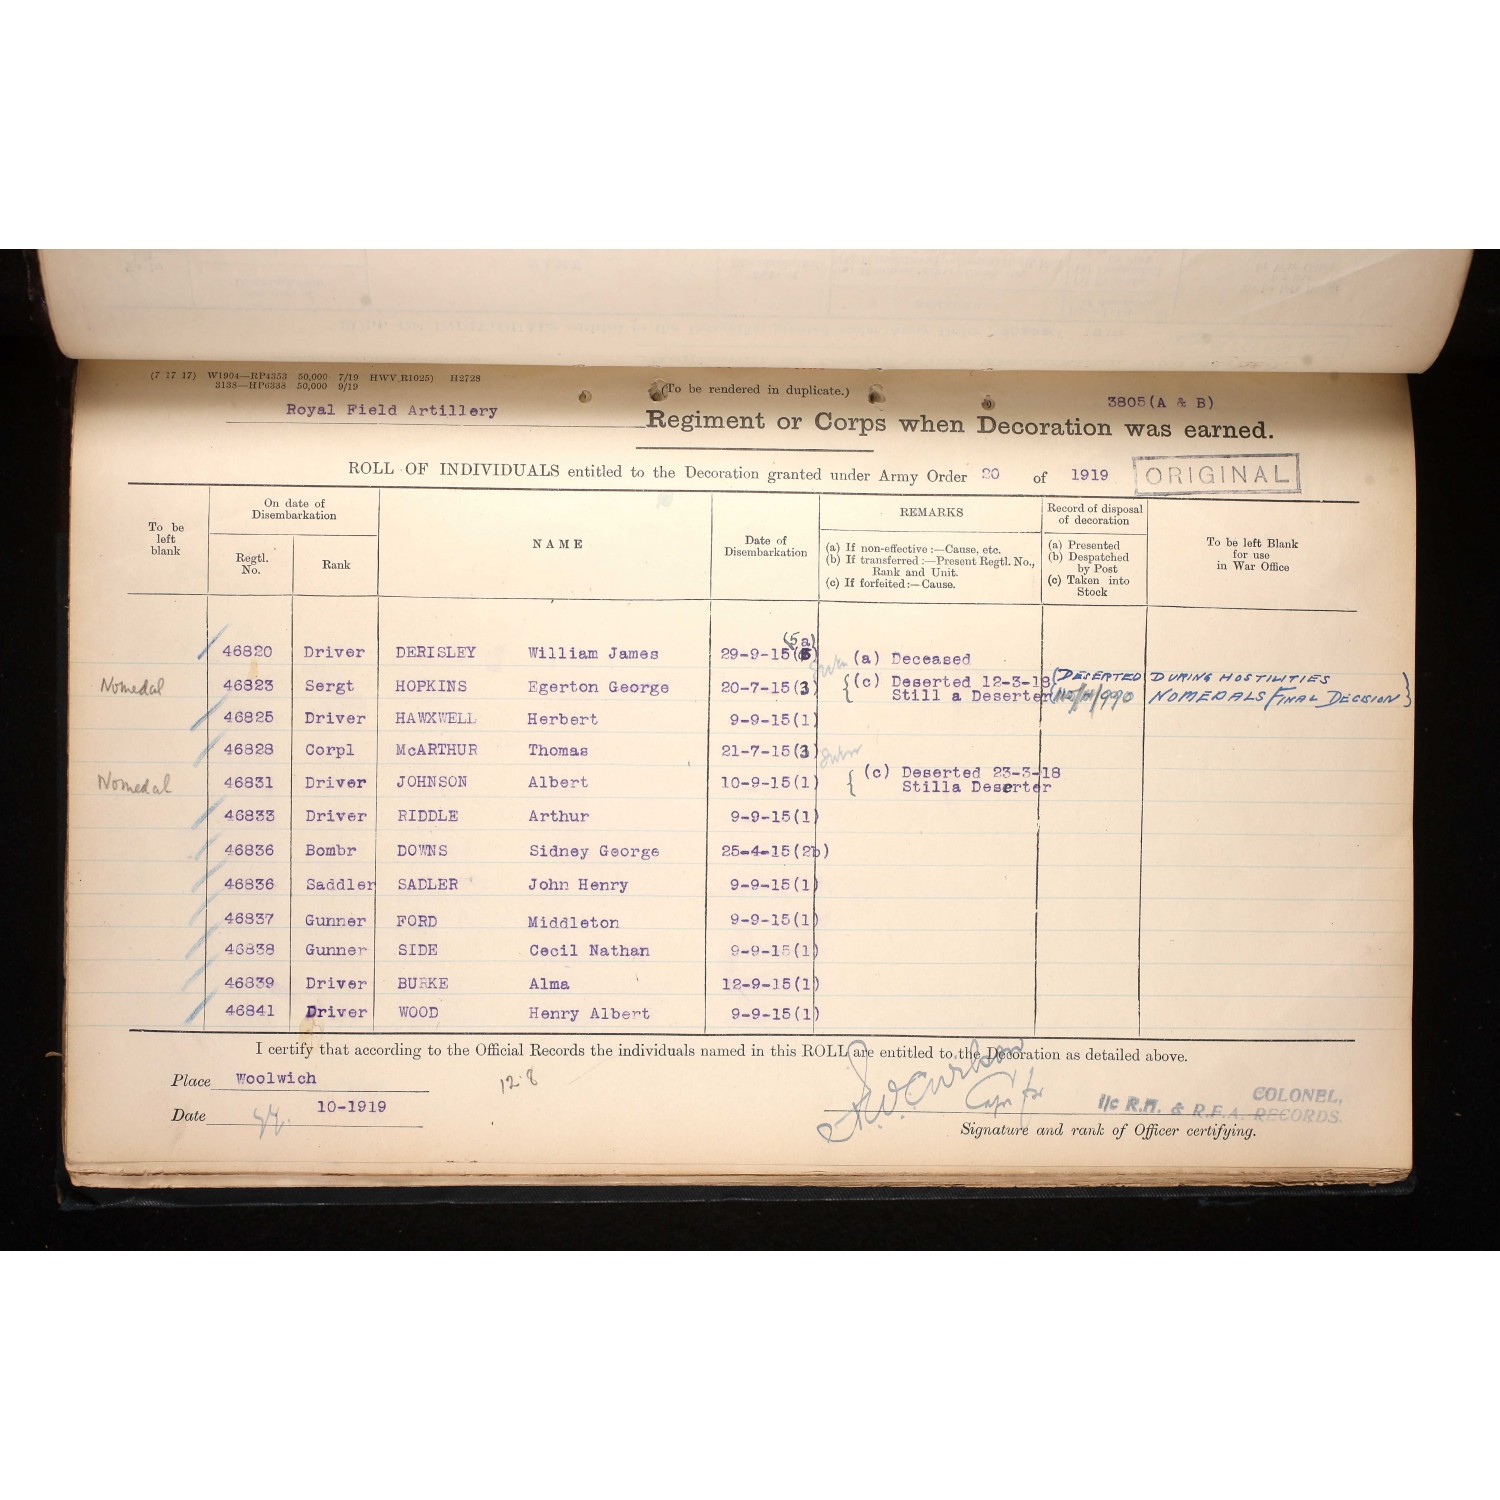 (7 17 17) W1904—RP4353 50,000 7/19 HWV R1025) H2728
3138—HP6338 50,000 9/19
(To be rendered in duplicate.)
3805(A & B)
Royal Field Artillery Regiment or Corps when Decoration was earned.
ROLL OF INDIVIDUALS entitled to the Decoration granted under Army Order 20 of 1919 ORIGINAL
To be left blank
On date of Disembarkation
Regtl. No.
Rank
NAME
Date of Disembarkation
REMARKS
(a) If non-effective:—Cause, etc.
(b) If transferred:—Present Regtl. No., Rank and Unit.
(c) If forfeited:—Cause.
Record of disposal of decoration
(a) Presented
(b) Despatched by Post
(c) Taken into Stock
To be left Blank for use in War Office
(5a)
46820 Driver DERISLEY William James 29-9-15 (a) Deceased
Nomedal 46823 Sergt HOPKINS Egerton George 20-7-15(3) (c) Deserted 12-3-18 (DESERTED DURING HOSTILITIES
Still a Deserter NOMEDALS/FINAL DECISION)
46825 Driver HAWXWELL Herbert 9-9-15(1)
46828 Corpl McARTHUR Thomas 21-7-15(3)
Nomedal 46831 Driver JOHNSON Albert 10-9-15(1) (c) Deserted 23-3-18
Stilla Deserter
46833 Driver RIDDLE Arthur 9-9-15(1)
46836 Bombr DOWNS Sidney George 25-4-15(2b)
46836 Saddler SADLER John Henry 9-9-15(1)
46837 Gunner FORD Middleton 9-9-15(1)
46838 Gunner SIDE Cecil Nathan 9-9-15(1)
46839 Driver BURKE Alma 12-9-15(1)
46841 Driver WOOD Henry Albert 9-9-15(1)
I certify that according to the Official Records the individuals named in this ROLL are entitled to the Decoration as detailed above.
Place Woolwich
12.8
Date 10-1919
Capt for
COLONEL,
I/c R.H. & R.F.A. RECORDS.
Signature and rank of Officer certifying.